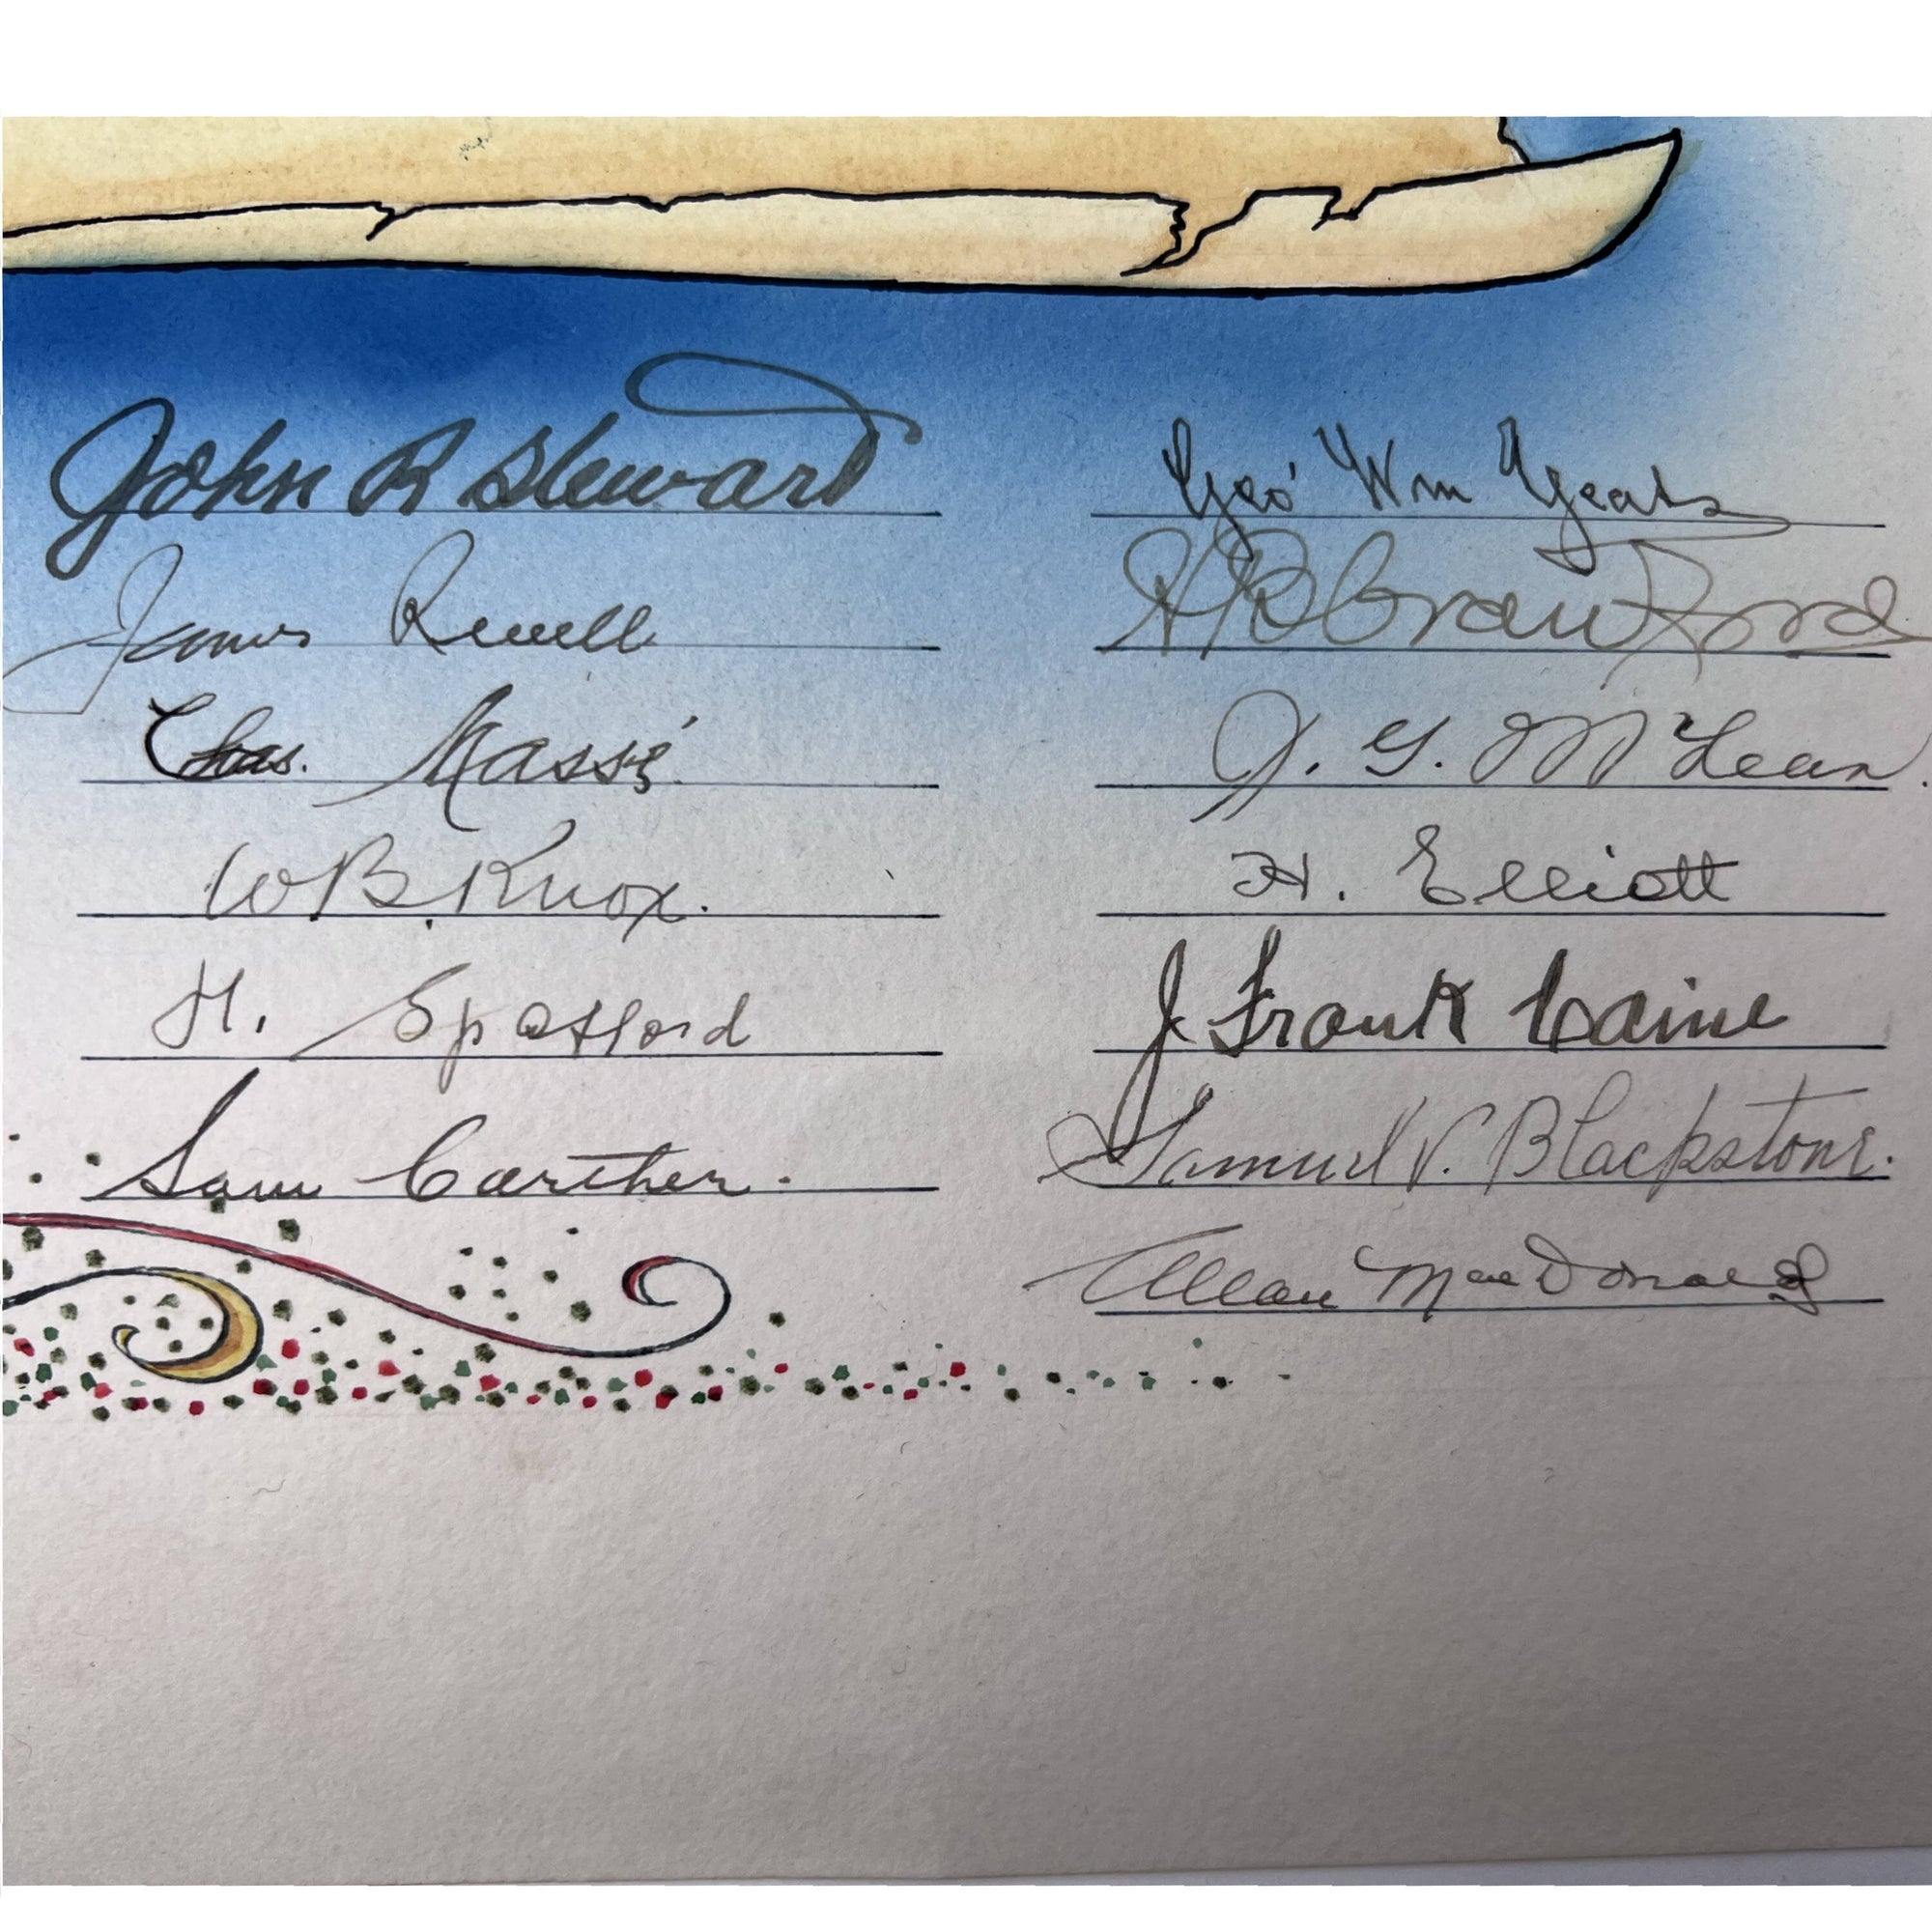 John R Steward
James Revell
Chas. Massé
W B Knox.
H. Spafford
Sam Carther.
Geo Wm Yeats
Crawford
J. G. McLean.
H. Elliott
J Frank Caine
Samuel V. Blackstone.
Allan MacDonald